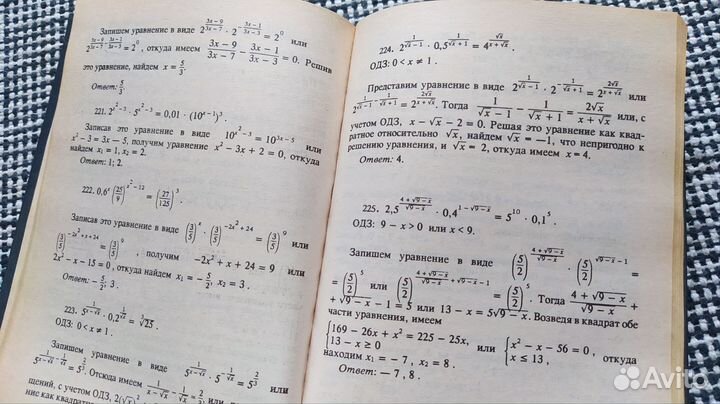 Запишем уравнение в виде 2^{\frac{3x-9}{3x-7}} · 2^{-\frac{3x-1}{3x-3}} = 2^0 или
2^{\frac{3x-9}{3x-7} - \frac{3x-1}{3x-3}} = 2^0, откуда имеем \frac{3x-9}{3x-7} - \frac{3x-1}{3x-3} = 0. Решив
это уравнение, найдем x = \frac{5}{3}.
Ответ: \frac{5}{3}.
221. 2^{x^2-3} · 5^{x^2-3} = 0,01 · (10^{x-1})^3.
Записав это уравнение в виде 10^{x^2-3} = 10^{3x-5} или
x^2 - 3 = 3x - 5, получим уравнение x^2 - 3x + 2 = 0, откуда
найдем x_1 = 1, x_2 = 2.
Ответ: 1; 2.
222. 0,6^x (\frac{25}{9})^{x^2-12} = (\frac{27}{125})^3.
Записав это уравнение в виде (\frac{3}{5})^x · (\frac{3}{5})^{-2x^2+24} = (\frac{3}{5})^9 или
(\frac{3}{5})^{-2x^2+x+24} = (\frac{3}{5})^9, получим -2x^2 + x + 24 = 9 или
2x^2 - x - 15 = 0, откуда найдем x_1 = -\frac{5}{2}, x_2 = 3.
Ответ: -\frac{5}{2}; 3.
223. 5^{\frac{1}{x-\sqrt{x}}} · 0,2^{\frac{1}{\sqrt{x}}} = \sqrt[3]{25}.
ОДЗ: 0 < x ≠ 1.
Запишем уравнение в виде 5^{\frac{1}{x-\sqrt{x}}} · 5^{-\frac{1}{\sqrt{x}}} = 5^{\frac{2}{3}} или
5^{\frac{1}{x-\sqrt{x}} - \frac{1}{\sqrt{x}}} = 5^{\frac{2}{3}}. Отсюда имеем \frac{1}{x-\sqrt{x}} - \frac{1}{\sqrt{x}} = \frac{2}{3}
щений, с учетом ОДЗ,
ние как квадрат
224. 2^{\frac{1}{\sqrt{x}-1}} · 0,5^{\frac{1}{\sqrt{x}+1}} = 4^{\frac{\sqrt{x}}{x+\sqrt{x}}}.
ОДЗ: 0 < x ≠ 1.
Представим уравнение в виде 2^{\frac{1}{\sqrt{x}-1}} · 2^{-\frac{1}{\sqrt{x}+1}} = 2^{\frac{2\sqrt{x}}{x+\sqrt{x}}} или
2^{\frac{1}{\sqrt{x}-1} - \frac{1}{\sqrt{x}+1}} = 2^{\frac{2\sqrt{x}}{x+\sqrt{x}}}. Тогда \frac{1}{\sqrt{x}-1} - \frac{1}{\sqrt{x}+1} = \frac{2\sqrt{x}}{x+\sqrt{x}} или, с
учетом ОДЗ, x - \sqrt{x} - 2 = 0. Решая это уравнение как квад-
ратное относительно \sqrt{x}, найдем \sqrt{x} = -1, что непригодно к
решению уравнения, и \sqrt{x} = 2, откуда имеем x = 4.
Ответ: 4.
225. 2,5^{\frac{4+\sqrt{9-x}}{\sqrt{9-x}}} · 0,4^{1-\sqrt{9-x}} = 5^{10} · 0,1^5.
ОДЗ: 9 - x > 0 или x < 9.
Запишем уравнение в виде (\frac{5}{2})^{\frac{4+\sqrt{9-x}}{\sqrt{9-x}}} · (\frac{5}{2})^{\sqrt{9-x}-1} =
= (\frac{5}{2})^5 или (\frac{5}{2})^{\frac{4+\sqrt{9-x}}{\sqrt{9-x}}+\sqrt{9-x}-1} = (\frac{5}{2})^5. Тогда \frac{4+\sqrt{9-x}}{\sqrt{9-x}} +
+ \sqrt{9-x} - 1 = 5 или 13 - x = 5\sqrt{9-x}. Возведя в квадрат обе
части уравнения, имеем
{169 - 26x + x^2 = 225 - 25x, или {x^2 - x - 56 = 0, откуда
{13 - x ≥ 0 {x ≤ 13,
находим x_1 = -7, x_2 = 8.
Ответ: -7, 8.
Avito